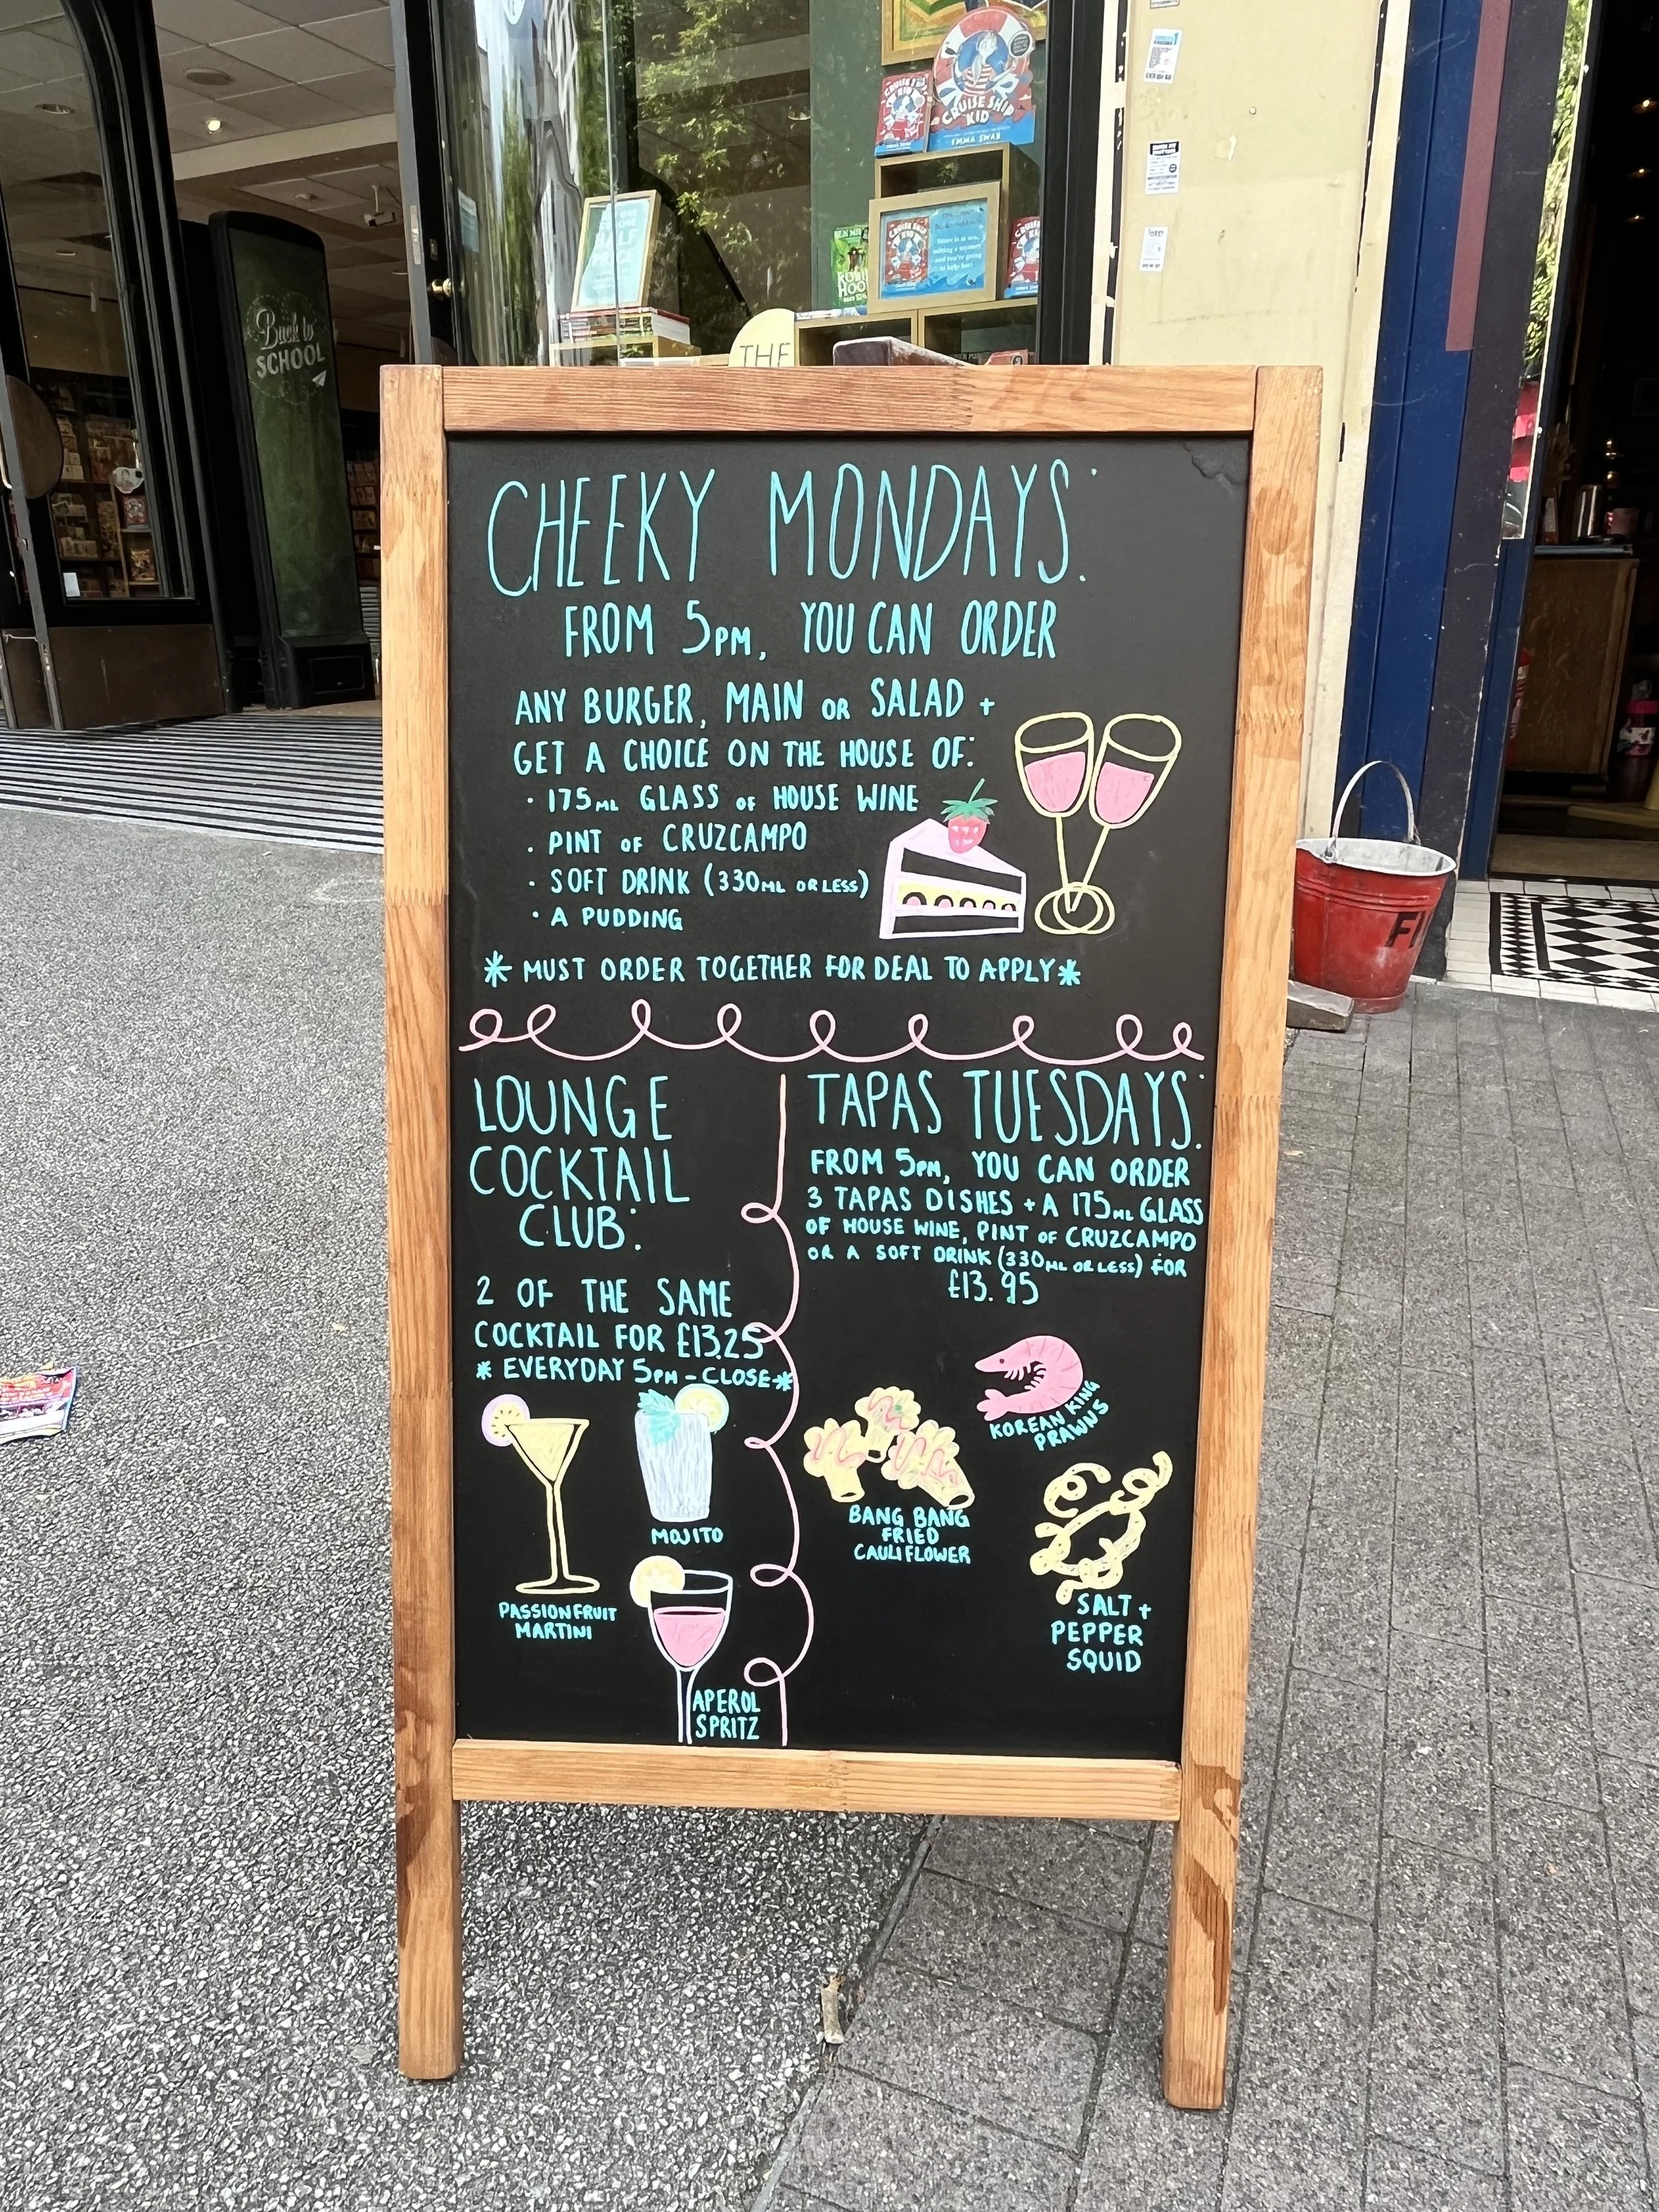 CRUISE SHIP
KID
EMMA SWAN
CRUISE
ROBIN
HOOD
Back to
SCHOOL
THE
CHEEKY MONDAYS:
FROM 5PM, YOU CAN ORDER
ANY BURGER, MAIN OR SALAD +
GET A CHOICE ON THE HOUSE OF:
· 175ML GLASS OF HOUSE WINE
· PINT OF CRUZCAMPO
· SOFT DRINK (330ML OR LESS)
· A PUDDING
* MUST ORDER TOGETHER FOR DEAL TO APPLY *
LOUNGE
COCKTAIL
CLUB:
2 OF THE SAME
COCKTAIL FOR £13.25
* EVERYDAY 5PM - CLOSE *
MOJITO
PASSIONFRUIT
MARTINI
APEROL
SPRITZ
TAPAS TUESDAYS:
FROM 5PM, YOU CAN ORDER
3 TAPAS DISHES + A 175ML GLASS
OF HOUSE WINE, PINT OF CRUZCAMPO
OR A SOFT DRINK (330ML OR LESS) FOR
£13.95
KOREAN KING
PRAWNS
BANG BANG
FRIED
CAULIFLOWER
SALT +
PEPPER
SQUID
FI